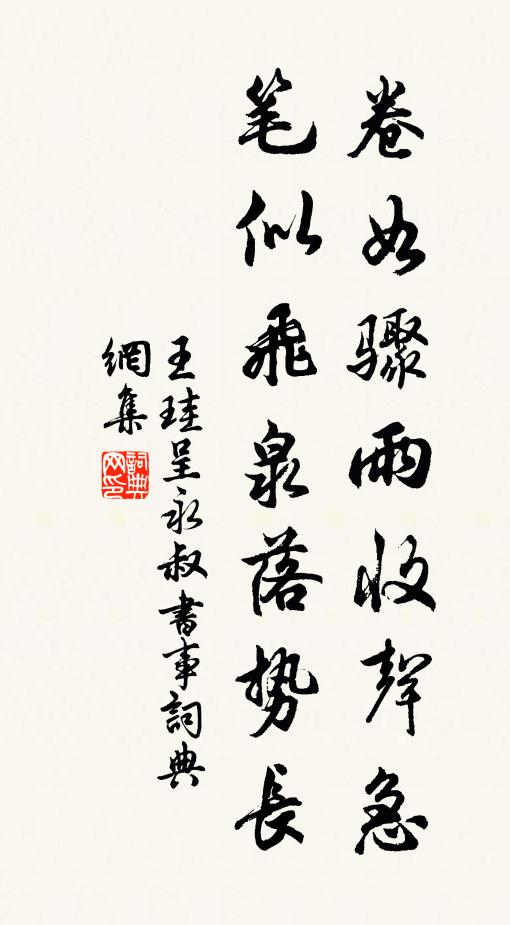 卷如驟雨收聲急
笔似飛泉落势長
王珪呈永叔書事詞典
網集
詞典
网印